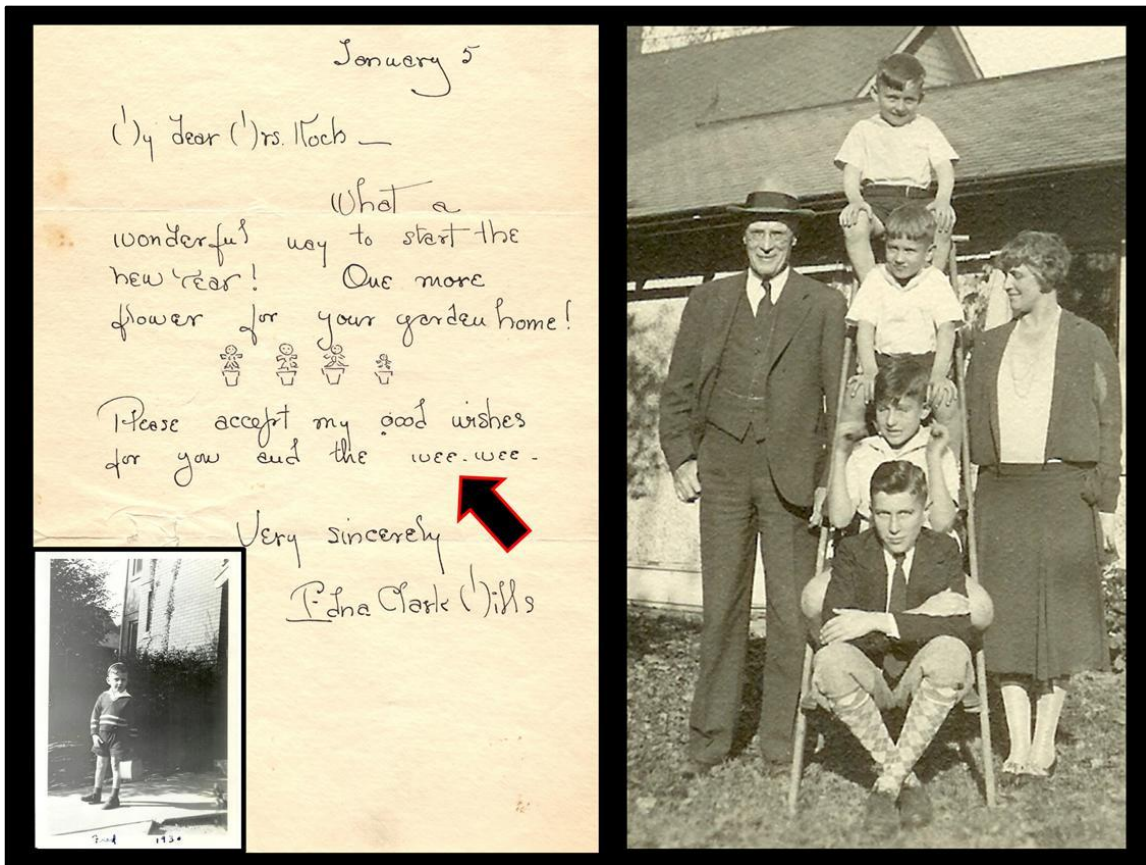 January 5
My dear Mrs. Koch —
What a
wonderful way to start the
new Year! One more
flower for your garden home!
Please accept my good wishes
for you and the wee-wee-
Very sincerely
Edna Clark Mills
Fred 1930